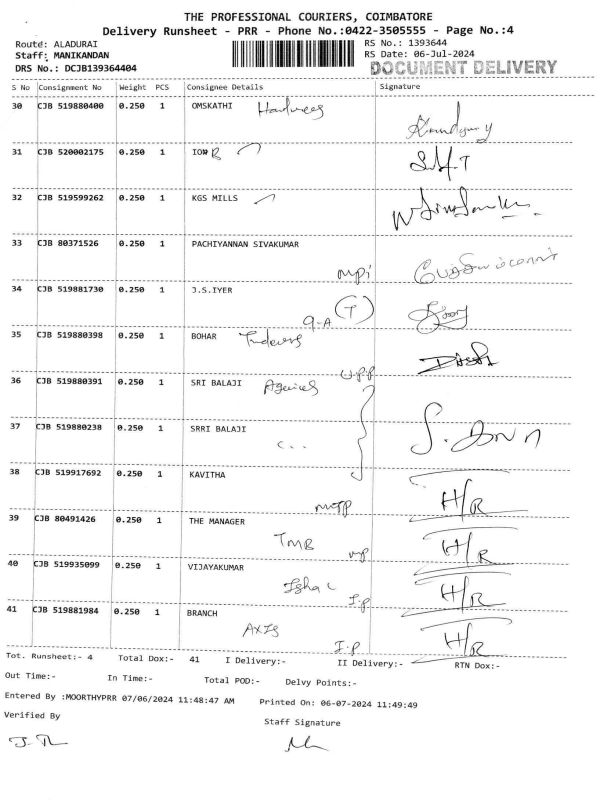 THE PROFESSIONAL COURIERS, COIMBATORE
Delivery Runsheet - PRR - Phone No.:0422-3505555 - Page No.:4
Route: ALADURAI RS No.: 1393644
Staff: MANIKANDAN RS Date: 06-Jul-2024
DRS No.: DCJB139364404 DOCUMENT DELIVERY
S No Consignment No Weight PCS Consignee Details Signature
30 CJB 519880400 0.250 1 OMSKATHI
31 CJB 520002175 0.250 1 IO#B S.M.T
32 CJB 519599262 0.250 1 KGS MILLS
33 CJB 80371526 0.250 1 PACHIYANNAN SIVAKUMAR
mpi
34 CJB 519881730 0.250 1 J.S.IYER (T)
9-A
35 CJB 519880398 0.250 1 BOHAR Traders
U.P.P
36 CJB 519880391 0.250 1 SRI BALAJI Agencies
37 CJB 519880238 0.250 1 SRRI BALAJI
38 CJB 519917692 0.250 1 KAVITHA
H/R
39 CJB 80491426 0.250 1 THE MANAGER
TMB H/R
40 CJB 519935099 0.250 1 VIJAYAKUMAR
Isha I.P H/R
41 CJB 519881984 0.250 1 BRANCH
AXIS I.P H/R
Tot. Runsheet:- 4 Total Dox:- 41 I Delivery:- II Delivery:- RTN Dox:-
Out Time:- In Time:- Total POD:- Delvy Points:-
Entered By :MOORTHYPRR 07/06/2024 11:48:47 AM Printed On: 06-07-2024 11:49:49
Verified By Staff Signature